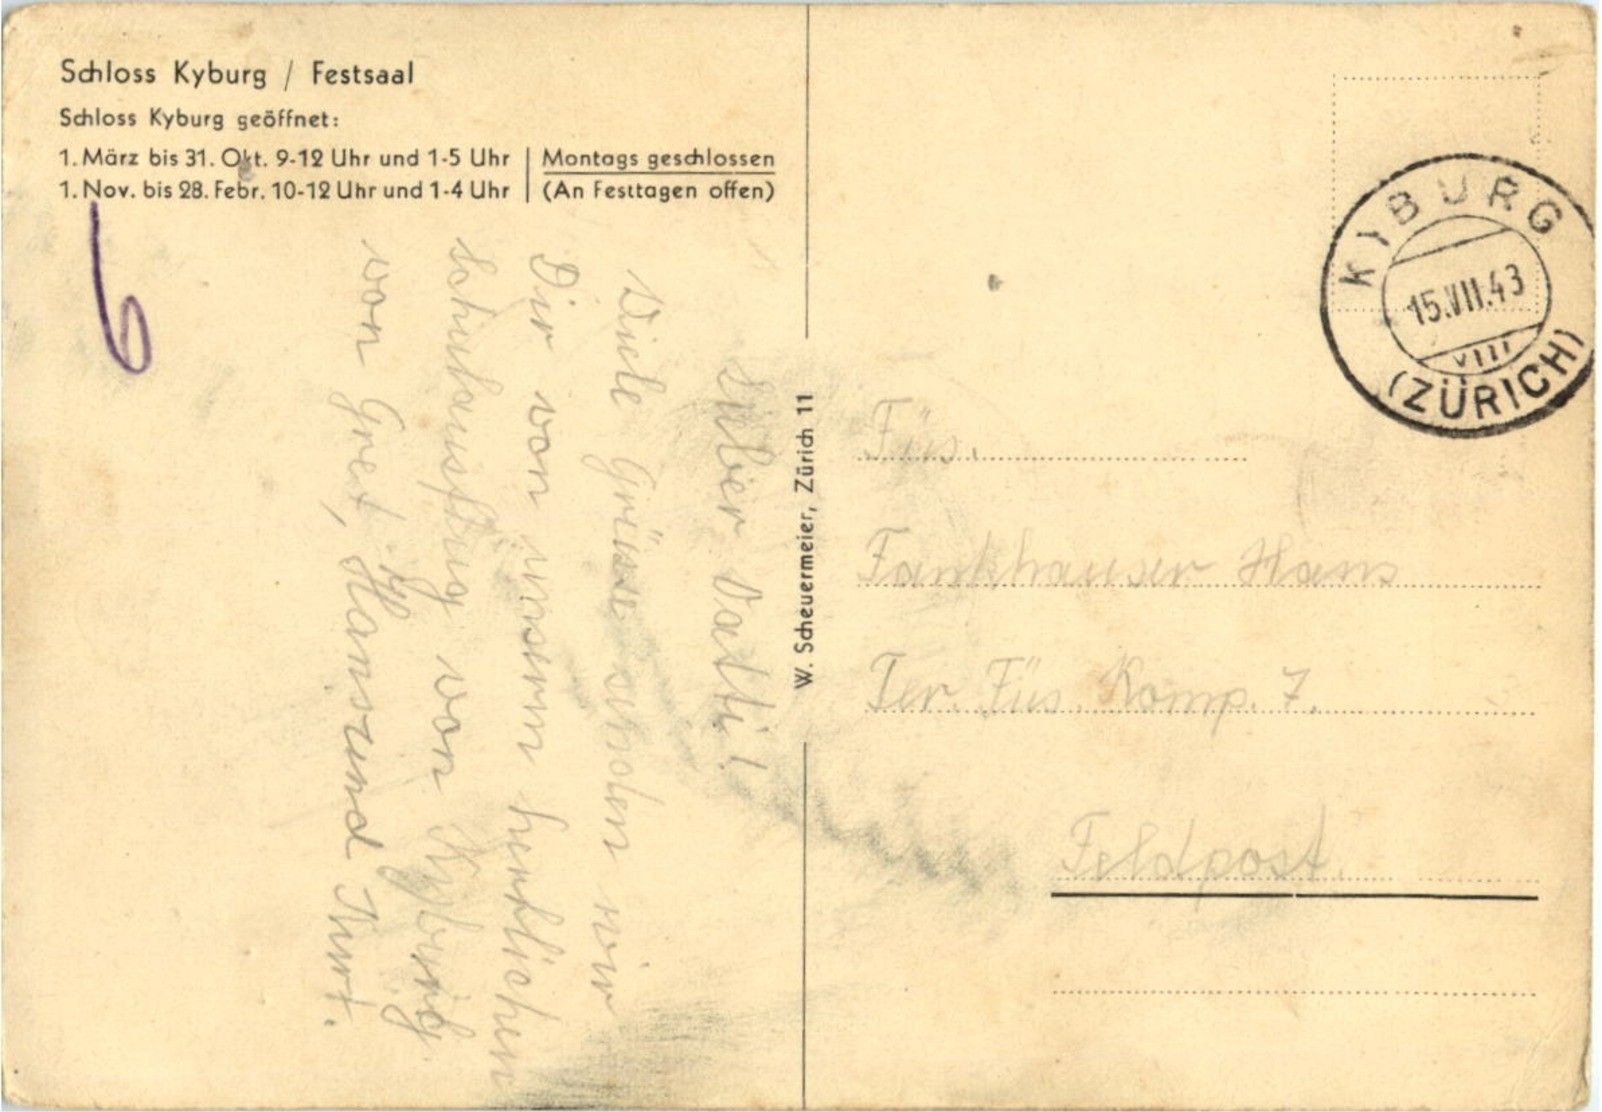 Schloss Kyburg / Festsaal
Schloss Kyburg geöffnet:
1. März bis 31. Okt. 9-12 Uhr und 1-5 Uhr
1. Nov. bis 28. Febr. 10-12 Uhr und 1-4 Uhr
Montags geschlossen
(An Festtagen offen)
6
Lieber Vatti!
Viele Grüsse senden wir
Dir von unserm herrlichen
Schulausflug von Kyburg.
von Gret, Hans und Kurt.
W. Scheuermeier, Zürich 11
KYBURG
15.VII.43
VIII
(ZÜRICH)
Füs.
Fankhauser Hans
Ter. Füs. Komp. 7.
Feldpost.